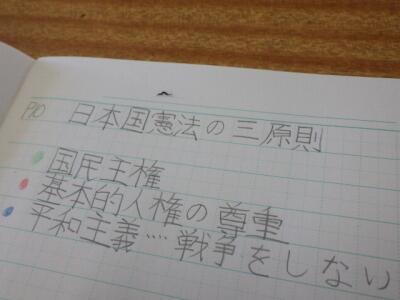 P10 日本国憲法の三原則
国民主権
基本的人権の尊重
平和主義……戦争をしない